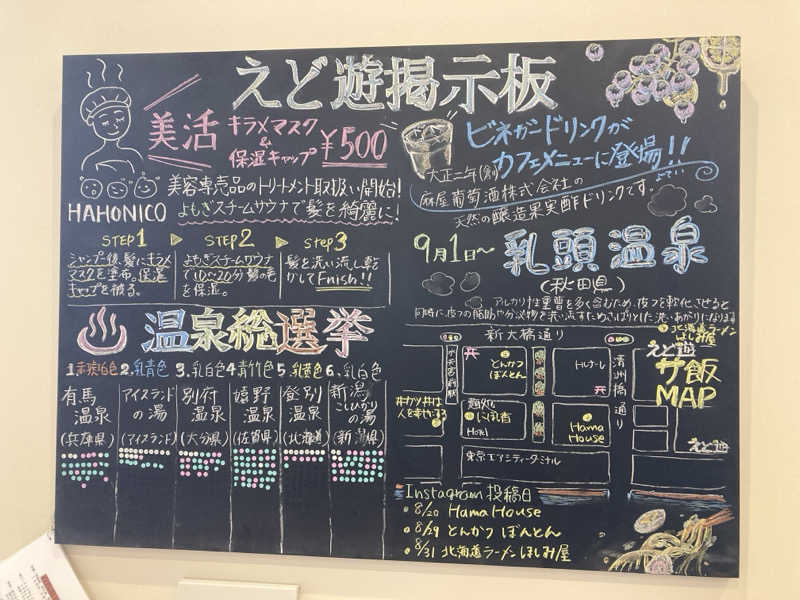 えど遊掲示板
美活 キラメマスク & 保湿キャップ ¥500
美容専売品のトリートメント取扱い開始!
HAHONICO よもぎスチームサウナで髪を綺麗に!
STEP1 ▶ STEP2 ▶ STEP3
シャンプー後、髪にキラメマスクを塗布。保湿キャップを被る。
よもぎスチームサウナで10~20分髪の毛を保湿。
髪を洗い流し乾かしてFnish!!
ビネガードリンクが
カフェメニューに登場!!
大正二年(創)
麻屋葡萄酒株式会社の
天然の醸造果実酢ドリンクです。
9月1日~ 乳頭温泉
(秋田県)
アルカリ性重曹を多く含むため、皮フを軟化させると
同時に、皮フの脂肪や分泌物を洗い流すためさっぱりとした洗いあがりになります
温泉総選挙
1.赤琥珀色 2.乳青色 3.乳白色 4青竹色 5.乳黄色 6.乳白色
有馬温泉
(兵庫県)
アイスランドの湯
(アイスランド)
別府温泉
(大分県)
嬉野温泉
(佐賀県)
登別温泉
(北海道)
新潟こしひかりの湯
(新潟県)
新大橋通り
北海道ラーメン
ほしみ屋
えど遊
サ飯
MAP
とんかつ
ぼんとん
トルナーレ
清洲橋通り
人を幸せにする
にほん橋
Hotel
Hama
House
えど遊
東京エアシティターミナル
Instagram 投稿日
・8/20 Hama House
・8/29 とんかつ ぼんとん
・8/31 北海道ラーメン ほしみ屋